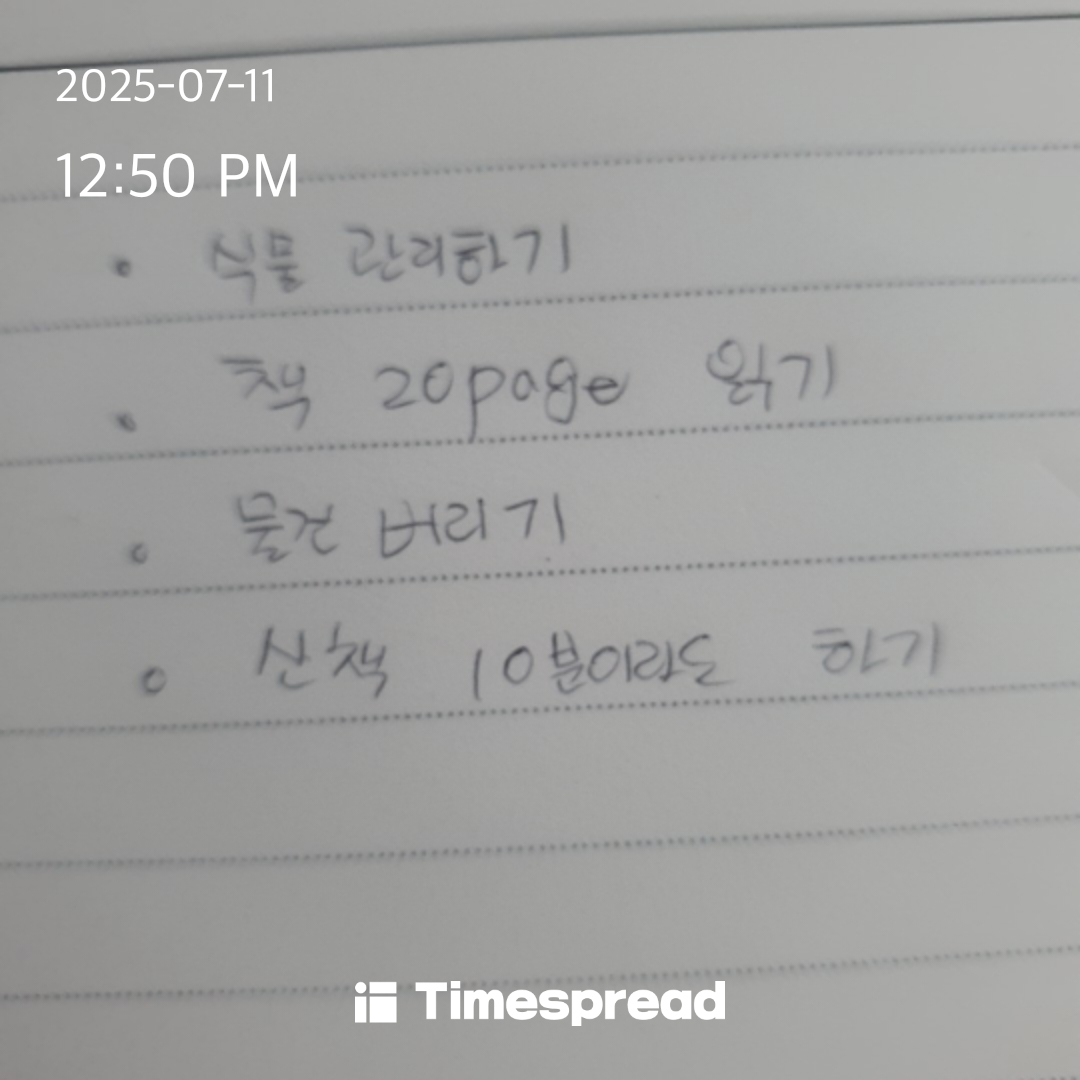 2025-07-11
12:50 PM
• 식물 관리하기
• 책 20page 읽기
• 물건 버리기
• 산책 10분이라도 하기
Timespread